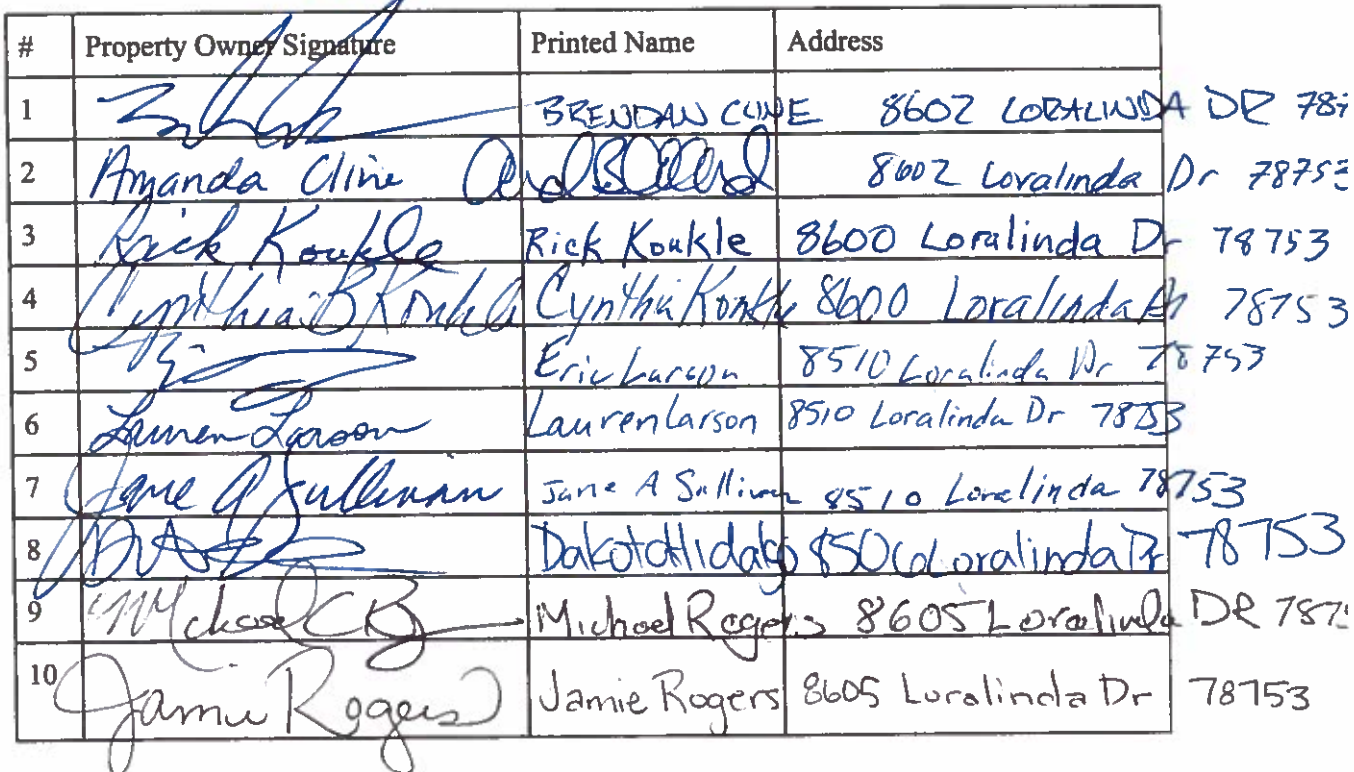 # Property Owner Signature Printed Name Address
1 BRENDAN CLINE 8602 LORALINDA DR 787
2 Amanda Cline 8602 Loralinda Dr 78753
3 Rick Koukle Rick Koukle 8600 Loralinda Dr 78753
4 Cynthia B Konkle Cynthia Konkle 8600 Loralinda Dr 78753
5 Eric Larson 8510 Loralinda Dr 78753
6 Lauren Larson Lauren Larson 8510 Loralinda Dr 78753
7 Jane A Sullivan Jane A Sullivan 8510 Loralinda 78753
8 Dakota Hidalgo Loralinda Dr 78753
9 Michael Michael Rogers 8605 Loralinda DR 787
10 Jamie Rogers Jamie Rogers 8605 Loralinda Dr 78753